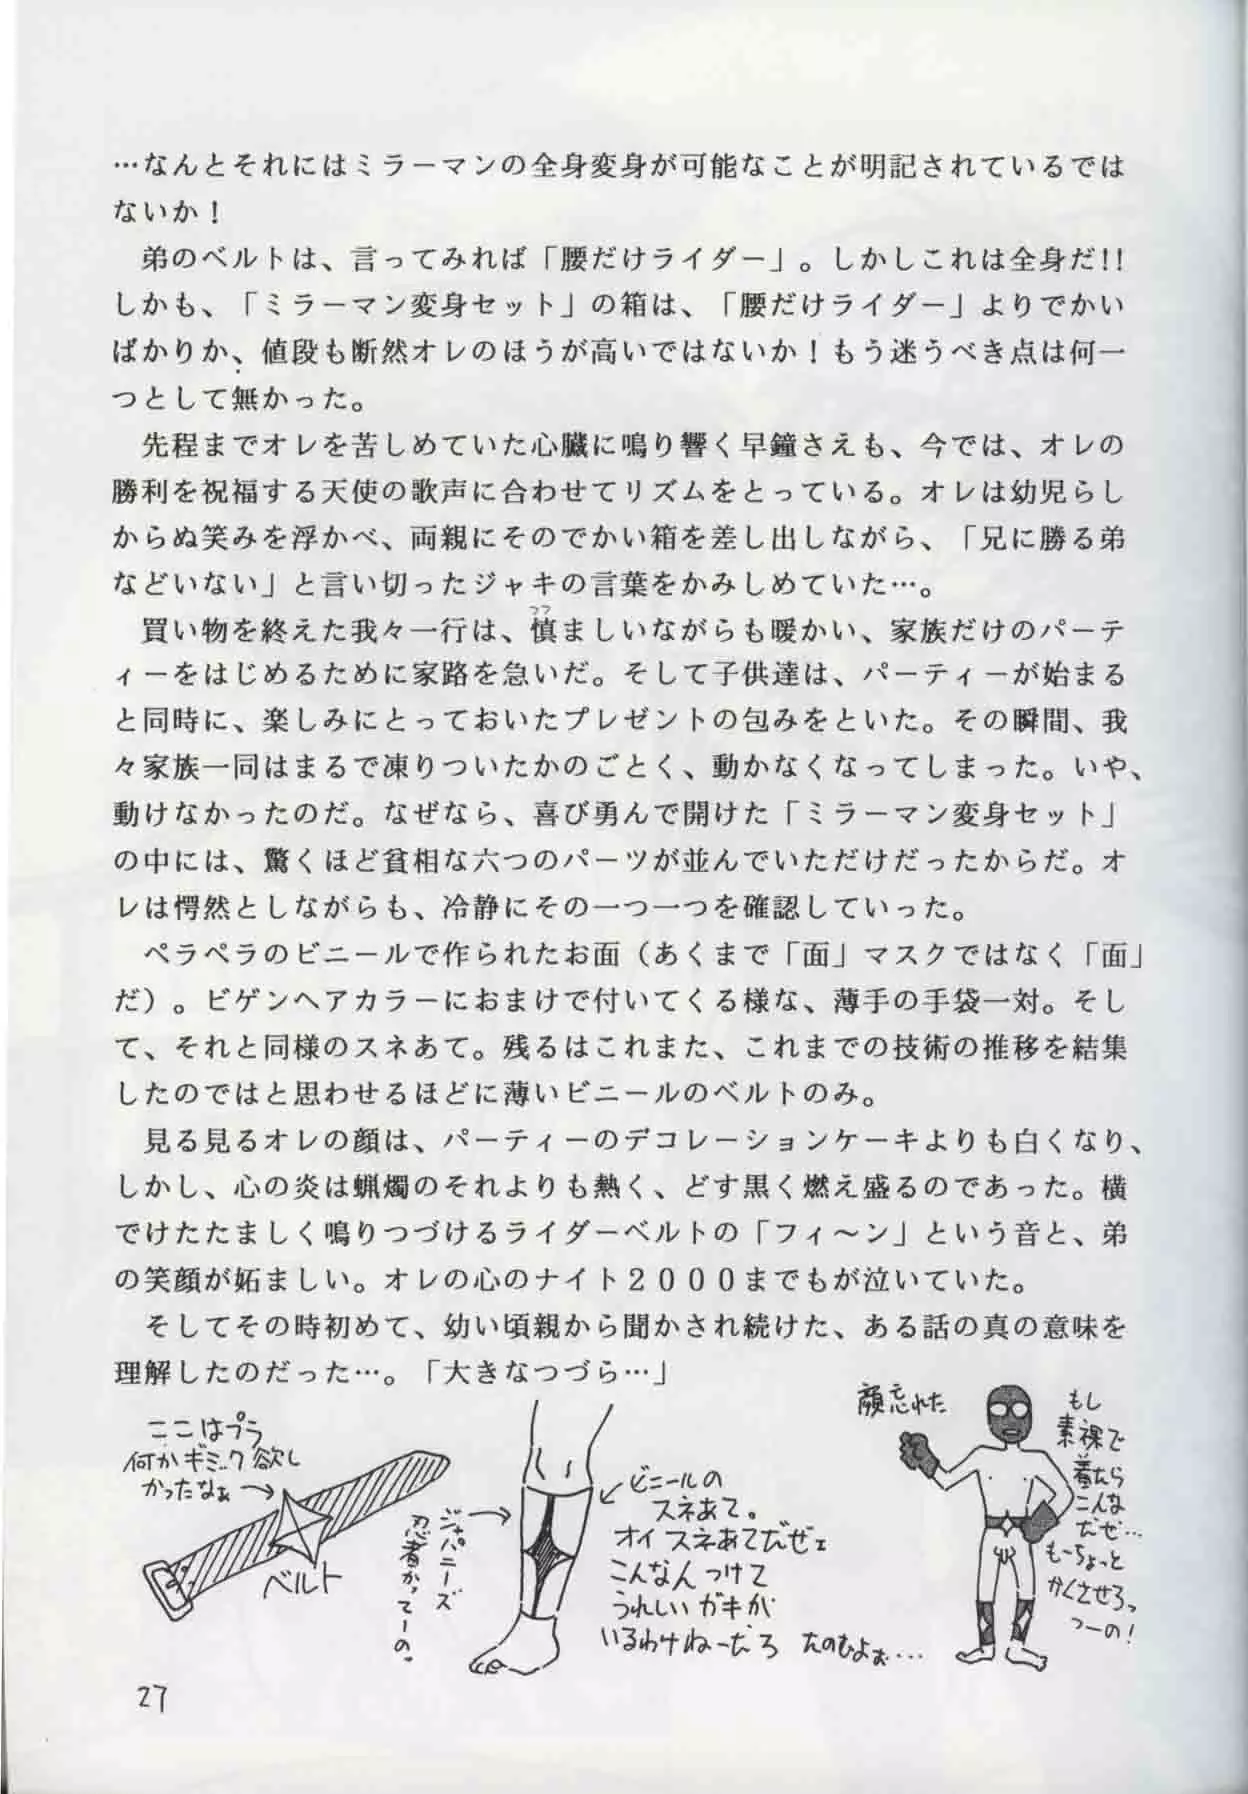 …なんとそれにはミラーマンの全身変身が可能なことが明記されているでは
ないか！
弟のベルトは、言ってみれば「腰だけライダー」。しかしこれは全身だ!!
しかも、「ミラーマン変身セット」の箱は、「腰だけライダー」よりでかい
ばかりか、値段も断然オレのほうが高いではないか！もう迷うべき点は何一
つとして無かった。
先程までオレを苦しめていた心臓に鳴り響く早鐘さえも、今では、オレの
勝利を祝福する天使の歌声に合わせてリズムをとっている。オレは幼児らし
からぬ笑みを浮かべ、両親にそのでかい箱を差し出しながら、「兄に勝る弟
などいない」と言い切ったジャキの言葉をかみしめていた…。
つつ
買い物を終えた我々一行は、慎ましいながらも暖かい、家族だけのパーテ
ィーをはじめるために家路を急いだ。そして子供達は、パーティーが始まる
と同時に、楽しみにとっておいたプレゼントの包みをといた。その瞬間、我
々家族一同はまるで凍りついたかのごとく、動かなくなってしまった。いや、
動けなかったのだ。なぜなら、喜び勇んで開けた「ミラーマン変身セット」
の中には、驚くほど貧相な六つのパーツが並んでいただけだったからだ。オ
レは愕然としながらも、冷静にその一つ一つを確認していった。
ペラペラのビニールで作られたお面（あくまで「面」マスクではなく「面」
だ）。ビゲンヘアカラーにおまけで付いてくる様な、薄手の手袋一対。そし
て、それと同様のスネあて。残るはこれまた、これまでの技術の推移を結集
したのではと思わせるほどに薄いビニールのベルトのみ。
見る見るオレの顔は、パーティーのデコレーションケーキよりも白くなり、
しかし、心の炎は蝋燭のそれよりも熱く、どす黒く燃え盛るのであった。横
でけたたましく鳴りつづけるライダーベルトの「フィ〜ン」という音と、弟
の笑顔が妬ましい。オレの心のナイト２０００までもが泣いていた。
そしてその時初めて、幼い頃親から聞かされ続けた、ある話の真の意味を
理解したのだった…。「大きなつづら…」
ここはプラ
何かギミック欲し
かったなぁ
ベルト
ジャパニーズ
忍者かってーの。
ビニールの
スネあて。
オイ スネあてだぜェ
こんなん つけて
うれしい ガキが
いるわけねーだろ
たのむよぉ…
顔忘れた
もし
素裸で
着たら
こんな
だぜ…
もーちょっと
かくさせろっ
つーの！
27